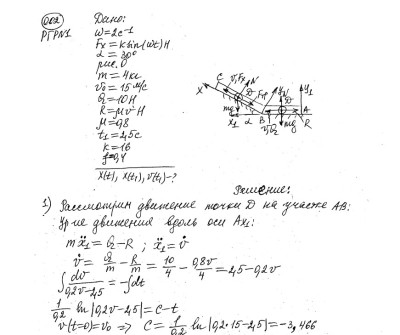 002
РГРN1
Дано:
ω=2c⁻¹
Fx=ksin(ωt)H
α=30°
рис. 0
m=4кг
v₀=15м/с
Q=10H
R=μvⁿH
μ=0,8
t₁=2,5c
k=16
f=0,4
x(t), x(t₁), v(t₁)-?
X C v,Fx N
D
Fтр
mg
X₁ α B
D A
R
mg
y₁
Решение:
1) Рассмотрим движение точки D на участке AB:
Ур-ие движения вдоль оси Ax₁:
mẍ₁=Q-R ; ẍ₁=v̇
v̇ = Q/m - R/m = 10/4 - 0,8v/4 = 2,5-0,2v
∫ dv/0,2v-2,5 = -∫dt
1/0,2 ln|0,2v-2,5|=C-t
v(t=0)=v₀ => C= 1/0,2 ln|0,2·15-2,5|=-3,466